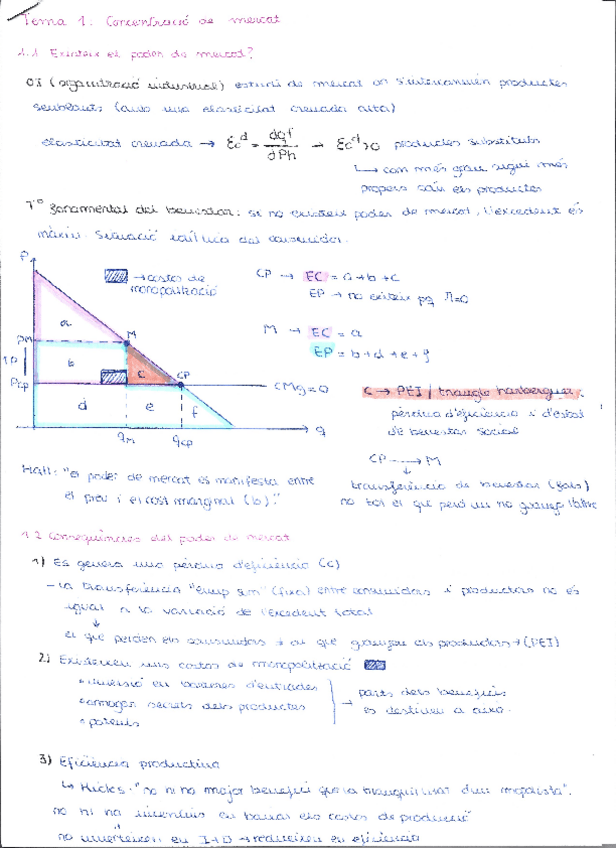 Tema 1: Concentració de mercat
1.1 Existeix el poder de mercat?
OI (organització industrial) estudi de mercat on s'intercanvien productes
semblants (amb una elasticitat creuada alta)
elasticitat creuada → Ɛcd = dqf / dPh → Ɛcd > 0 productes substituts
↳ com més gran sigui més
propers són els productes
Tº fonamental del benestar: si no existeix poder de mercat, l'excedent és
màxim. Situació idíl·lica del consumidor.
P
→ costos de
monopolització
CP → EC = a + b + c
EP → no existeix pq Π=0
M → EC = a
EP = b + d + e + f
a
M
PM
b
c
CP
PCP
CMg = 0
d
e
f
qM
qCP
q
c → PEI / triangle harberguer:
pèrdua d'eficiència i d'estat
de benestar social
CP → M
transferència de benestar (guany)
no tot el que perd un ho guanya l'altre
Hall: "el poder de mercat es manifesta entre
el preu i el cost marginal (b)."
1.2 Conseqüències del poder de mercat
1) Es genera una pèrdua d'eficiència (c)
- La transferència entre consumidors i productors no és
igual a la variació de l'excedent total
el que perden els consumidors ≠ al que guanyen els productors → (PEI)
2) Existeixen uns costos de monopolització
• inversió en barreres d'entrades
• amagar secrets dels productes
• patents
→ parts dels beneficis
es destinen a això.
3) Eficiència productiva
↳ Hicks: "no hi ha major benefici que la tranquil·litat d'un monopolista".
no hi ha incentius en baixar els costos de producció
no inverteixen en I+D → redueixen en eficiència